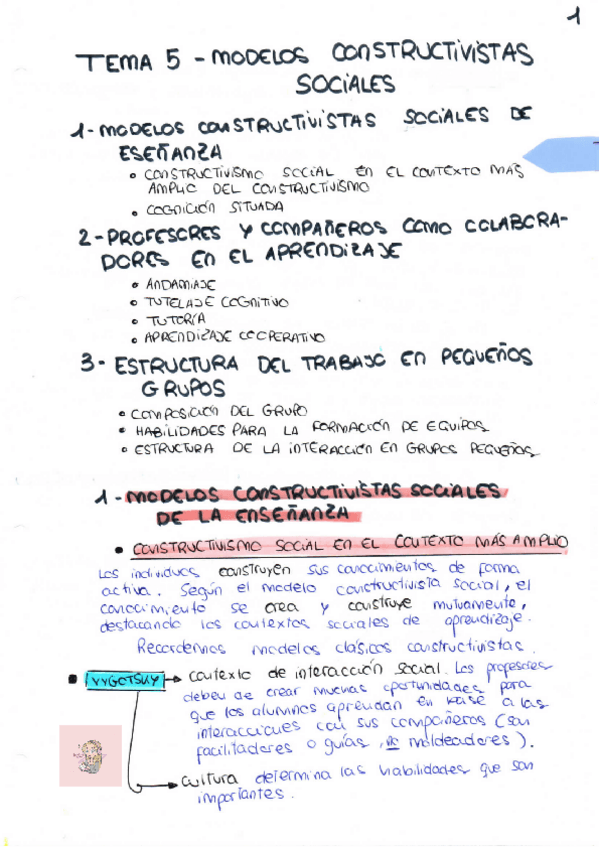 1
TEMA 5 - MODELOS CONSTRUCTIVISTAS
SOCIALES
1- MODELOS CONSTRUCTIVISTAS SOCIALES DE
ESEÑANZA
• CONSTRUCTIVISMO SOCIAL EN EL CONTEXTO MÁS
AMPLIO DEL CONSTRUCTIVISMO
• COGNICIÓN SITUADA
2- PROFESORES Y COMPAÑEROS COMO COLABORA-
DORES EN EL APRENDIZAJE
• ANDAMIAJE
• TUTELAJE COGNITIVO
• TUTORÍA
• APRENDIZAJE COOPERATIVO
3- ESTRUCTURA DEL TRABAJO EN PEQUEÑOS
GRUPOS
• COMPOSICIÓN DEL GRUPO
• HABILIDADES PARA LA FORMACIÓN DE EQUIPOS
• ESTRUCTURA DE LA INTERACCIÓN EN GRUPOS PEQUEÑOS
1- MODELOS CONSTRUCTIVISTAS SOCIALES
DE LA ENSEÑANZA
• CONSTRUCTIVISMO SOCIAL EN EL CONTEXTO MÁS AMPLIO
Los individuos construyen sus conocimientos de forma
activa. Según el modelo constructivista social, el
conocimiento se crea y construye mutuamente,
destacando los contextos sociales de aprendizaje.
Recordemos modelos clásicos constructivistas.
• VYGOTSKY → contexto de interacción social. Los profesores
deben de crear muchas oportunidades para
que los alumnos aprendan en base a las
interacciones con sus compañeros (son
facilitadores o guías, no moldeadores).
→ cultura determina las habilidades que son
importantes.